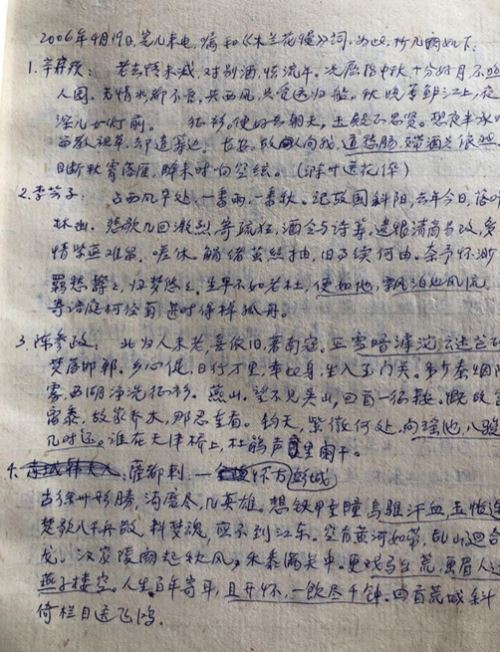 2006年4月19日,笔儿来电,嘱和《木兰花慢》词,为此,抄几阕如下:
1.辛弃疾: 老去情未减,对别酒,怯流年。况屈指中秋,十分好月,不照
人圆。无情水都不管,共西风,只管送归船。秋晚莼鲈江上,夜
深儿女灯前。 征衫,便好去朝天,玉殿正思贤。想夜半承明,
留教视草,却遣筹边。长安,故人问我,道愁肠,殢酒只依然。
目断秋霄落雁,醉来时响空弦。(
2.李芳子: 占西风早处,一番雨,一番秋。记故国斜阳,去年今日,落叶
林幽。悲歌几回激烈,寄疏狂,酒令与诗筹。遗恨清商易改,多
情紫燕难留。 嗟休,触绪茧丝抽,旧事续何由。奈予怀渺
羁愁郁郁,归梦悠悠。生平不如老杜,便如他,飘泊也风流。
寄语庭柯径菊,甚时得棹孤舟。
3.陈参政: 北归人未老,喜依旧,著南冠。正雪暗滹沱,云迷芒砀,
梦落邯郸。乡心促,日行万里,幸此身,生入玉门关。多少秦烟陇
雾,西湖净洗征衫。 燕山,望不见吴山,回首一征鞍。慨故宫
离黍,故家乔木,那忍重看。钧天,紫微何处,问瑶池,八骏
几时还。谁在天津桥上,杜鹃声里阑干。
4. 萨都剌:彭城
古徐州形胜,消磨尽,几英雄。想铁甲重瞳,乌骓汗血,玉帐连
楚歌八千兵散,料梦魂,应不到江东。空有黄河如带,乱山回合
龙。汉家陵阙起秋风,禾黍满关中。更戏马台荒,画眉人远
燕子楼空。人生百年寄耳,且开怀,一饮尽千钟。回首荒城斜
倚栏目送飞鸿。